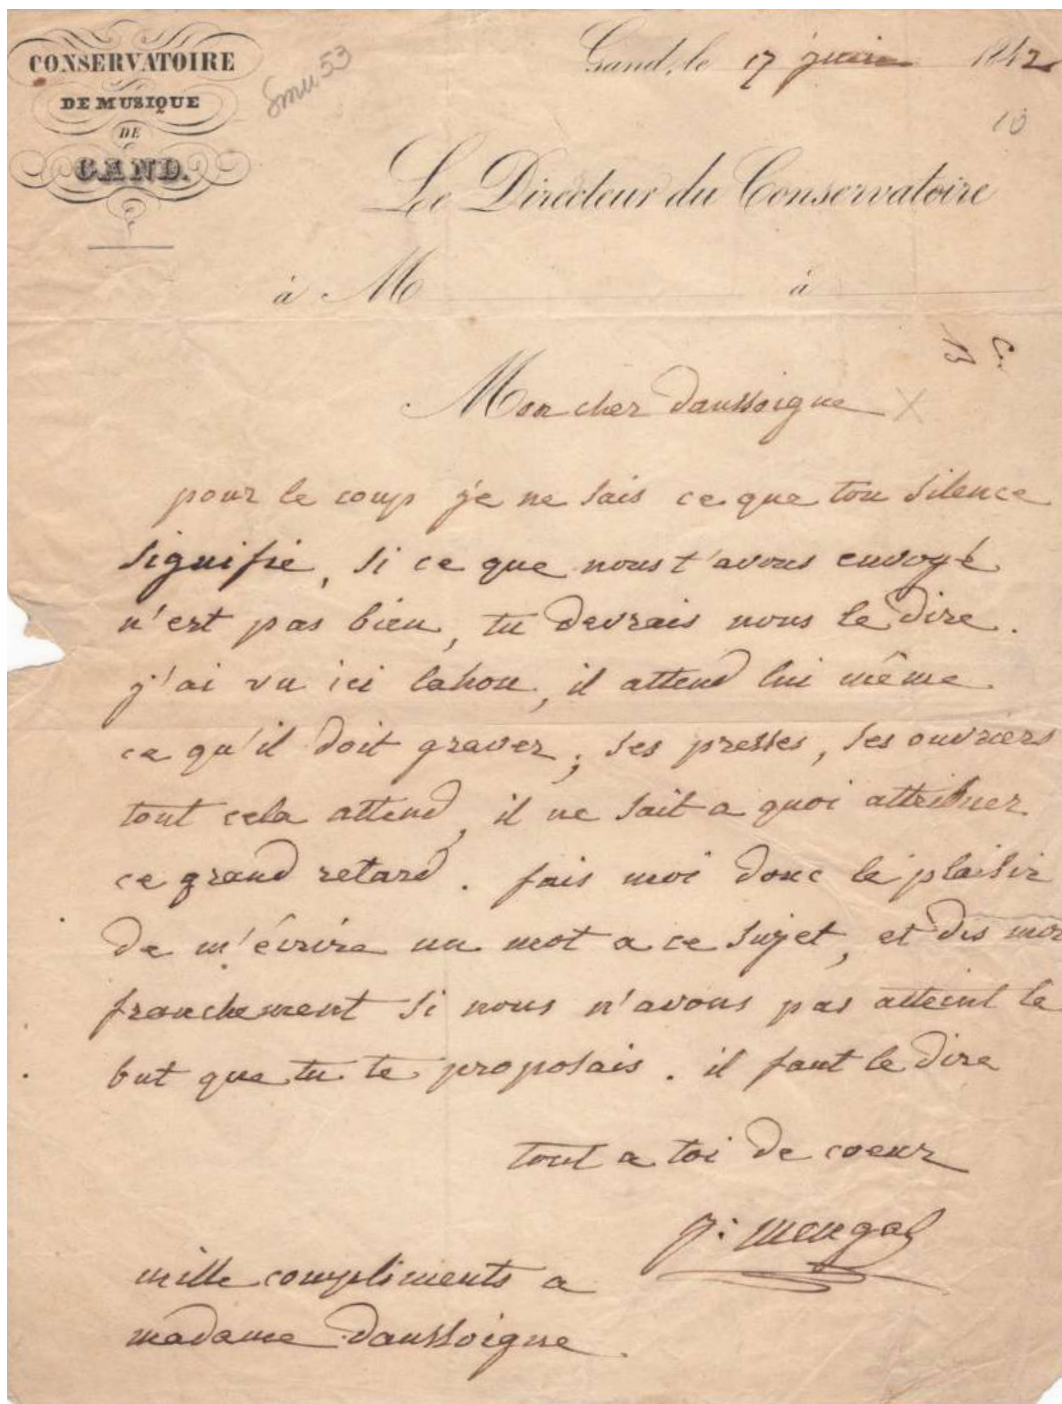 CONSERVATOIRE
DE MUSIQUE
DE
GAND.
Gand, le 17 juin 1842
10
Le Directeur du Conservatoire
à M à
Mon cher Daussoigne X
pour le coup je ne sais ce que ton silence
signifie, si ce que nous t'avons envoyé
n'est pas bien, tu devrais nous le dire.
j'ai vu ici lahou, il attend lui même
ce qu'il doit graver, ses presses, ses ouvriers
tout cela attend, il ne sait a quoi attribuer
ce grand retard. fais moi donc le plaisir
de m'écrire un mot a ce sujet, et dis moi
franchement si nous n'avons pas atteint le
but que tu te proposais. il faut le dire
tout a toi de coeur
j: mengal
mille compliments a
madame Daussoigne.